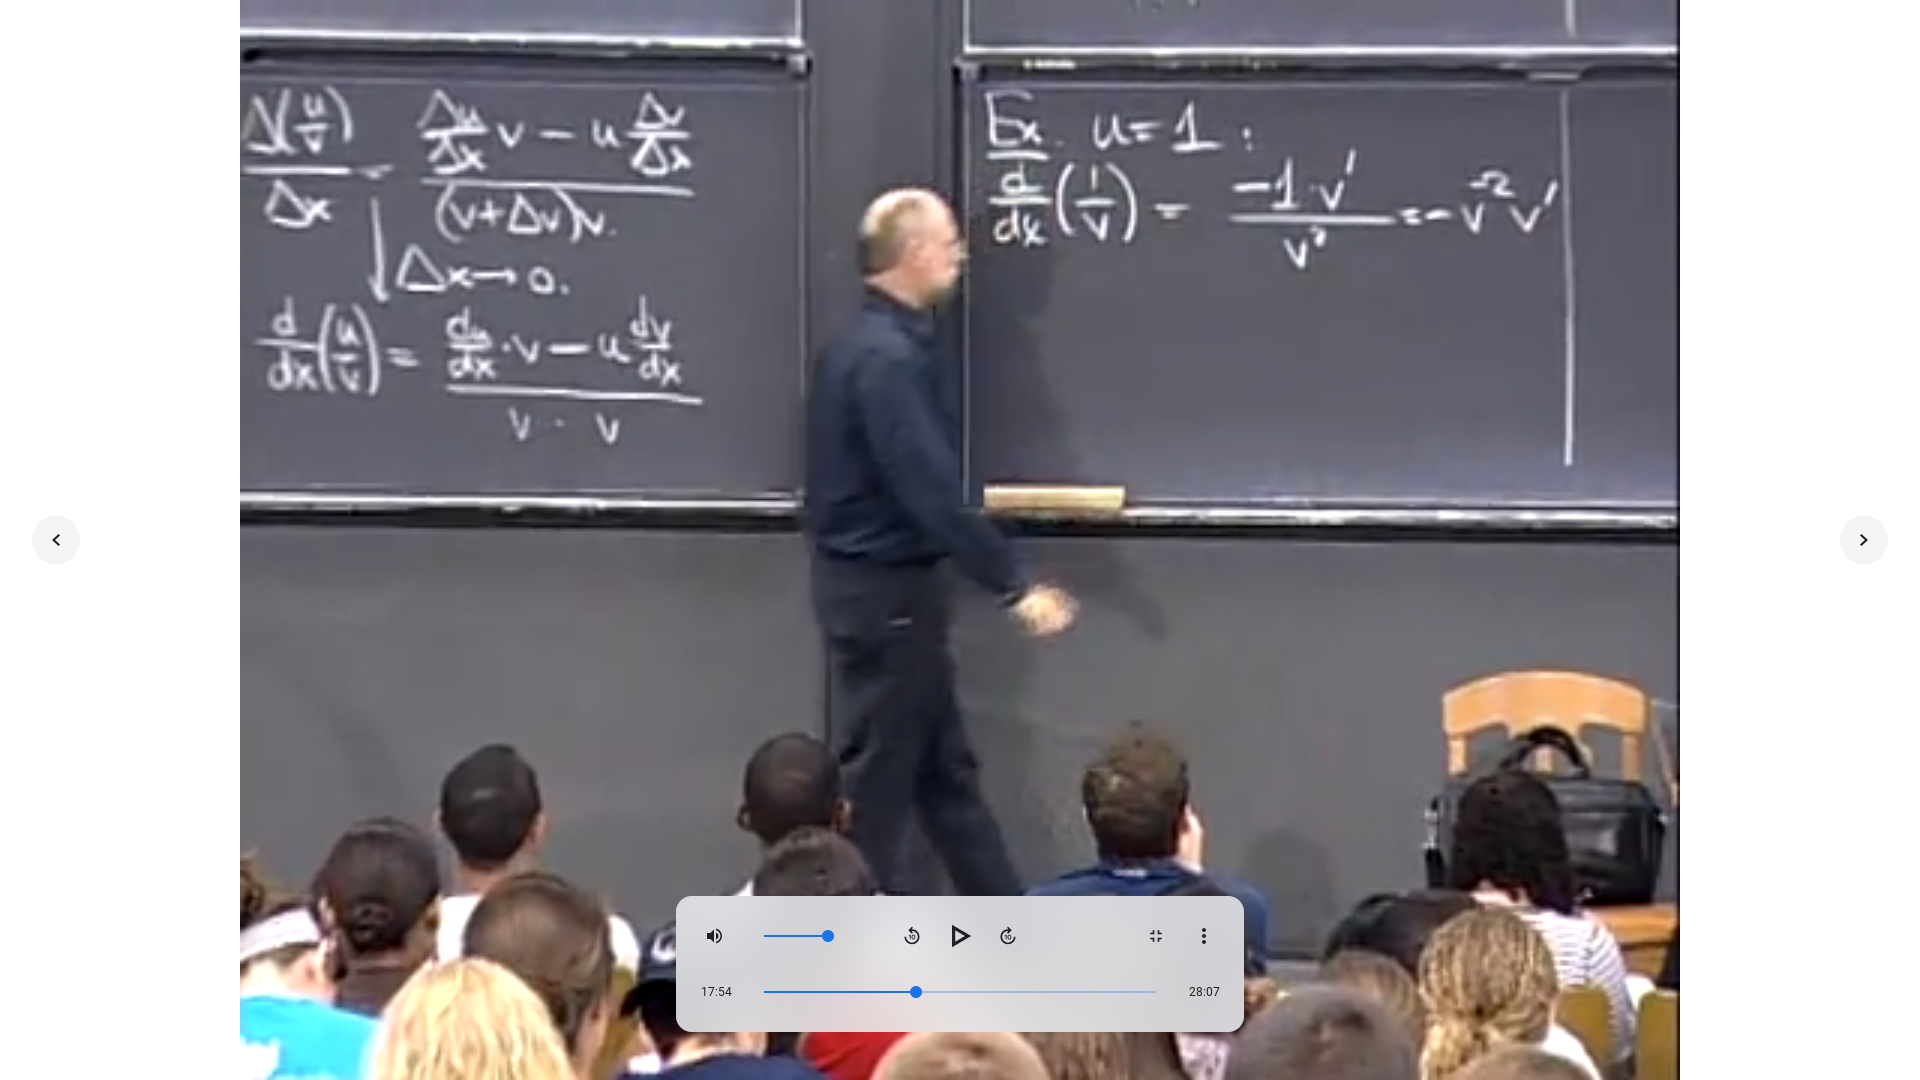 Δ(u/v)/Δx = (Δu/Δx v − u Δv/Δx)/((v+Δv)v.
↓ Δx→0.
d/dx(u/v) = (du/dx · v − u dv/dx)/(v · v)
Ex. u=1 :
d/dx(1/v) = (−1·v′)/v² = −v⁻²v′
10 10
17:54 28:07